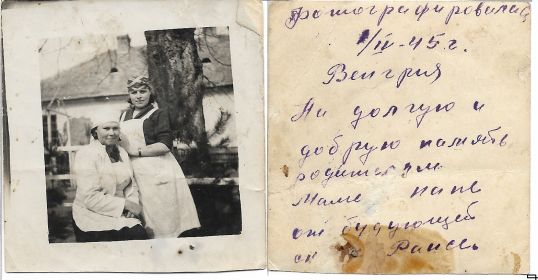 Фотографировалась
1/IV-45 г.
Венгрия
На долгую и
добрую память
родителям
Маме папе
от будующей
Раисы